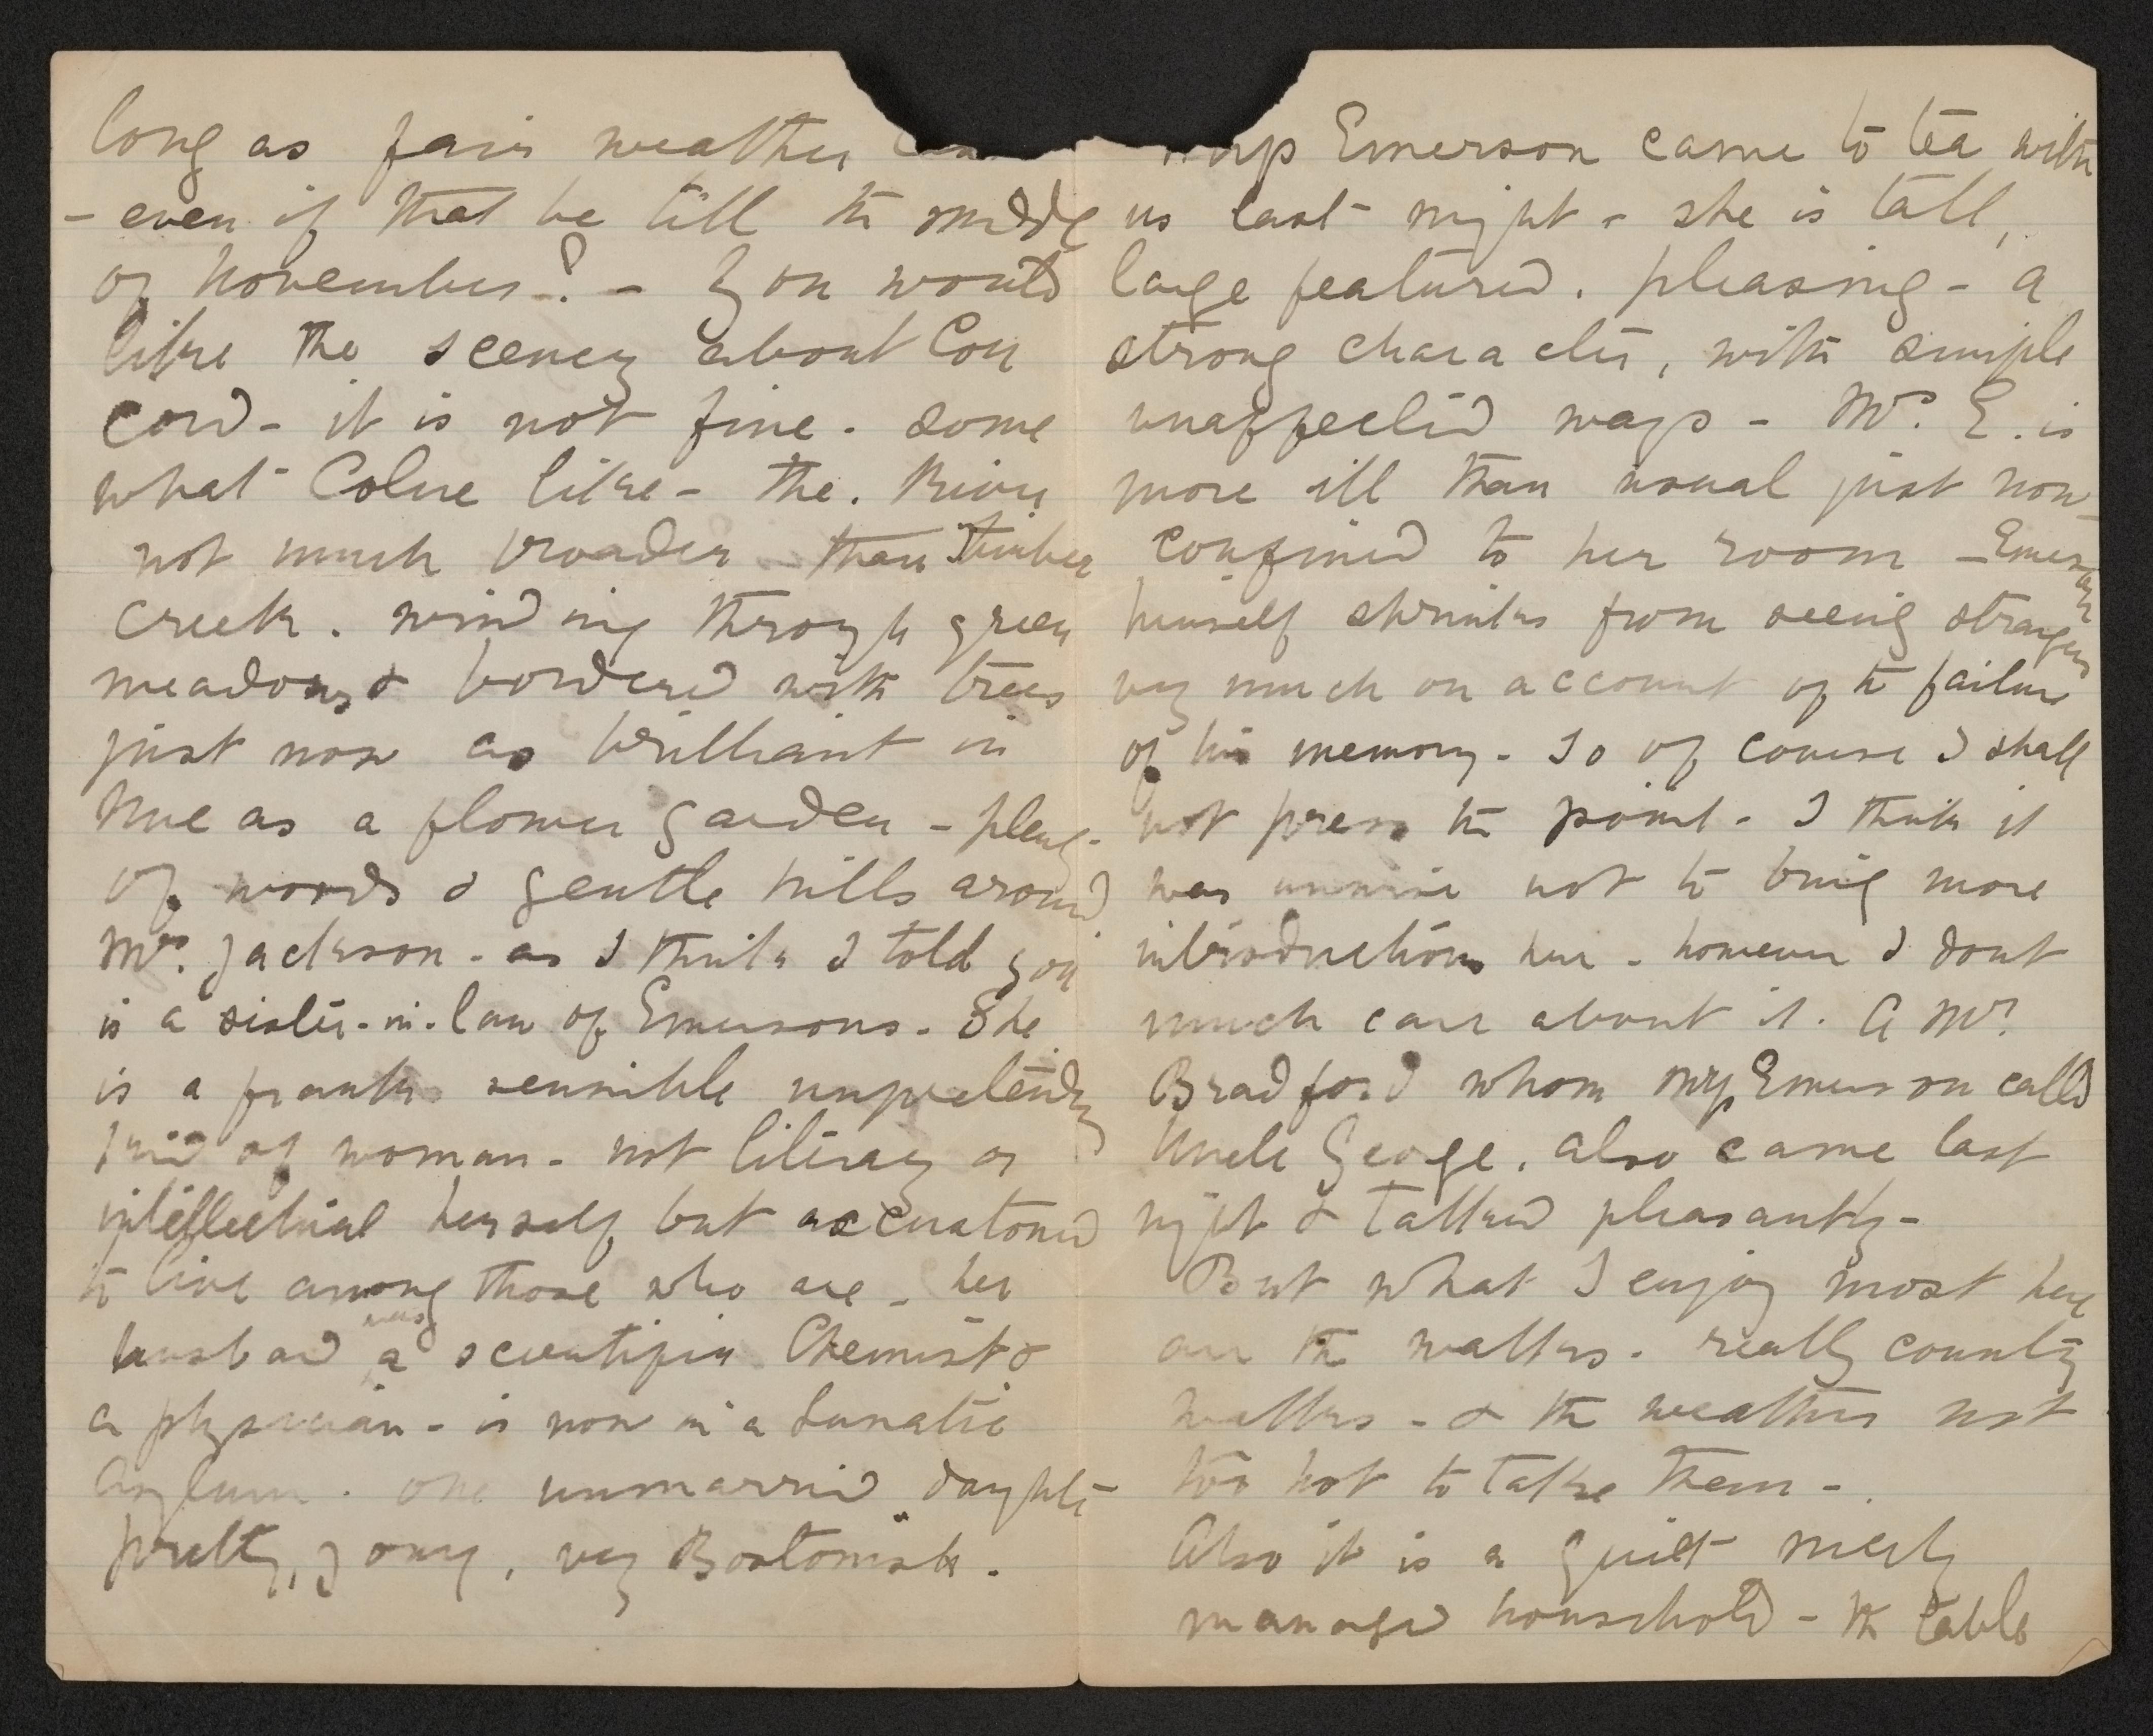 long as fair weather
- even if that be till the middle
of November? - You would
like the scenery about Con
cord - it is not fine - some
what Colne like - the River
not much broader than Timber
Creek. winding through green
meadows & bordered with trees
just now as brilliant in
hue as a flower garden - plenty
of woods & gentle hills around
Mrs. Jackson - as I think I told you
is a sister-in-law of Emersons. She
is a frank sensible unpretending
kind of woman - not literary or
intellectual herself, but accustomed
to live among those who are - her
husband was a scientific Chemist &
a physician - is now in a Lunatic
Asylum. one unmarried daughter
pretty, young, very Bostonish.
Emerson came to tea with
us last night - she is tall,
large featured. pleasing - a
strong character, with simple
unaffected ways - Mrs. E. is
more ill than usual just now -
confined to her room - Emerson
himself shrinks from seeing strangers
very much on account of the failure
of his memory - So of course I shall
not press the point - I think it
was unwise not to bring more
introductions here - however I dont
much care about it. A Mr.
Bradford whom Miss Emerson calls
Uncle George, also came last
night & talked pleasantly -
But what I enjoy most here
are the walks - really country
walks - & the weather not
too hot to take them -
Also it is a quiet nicely
managed household - the table